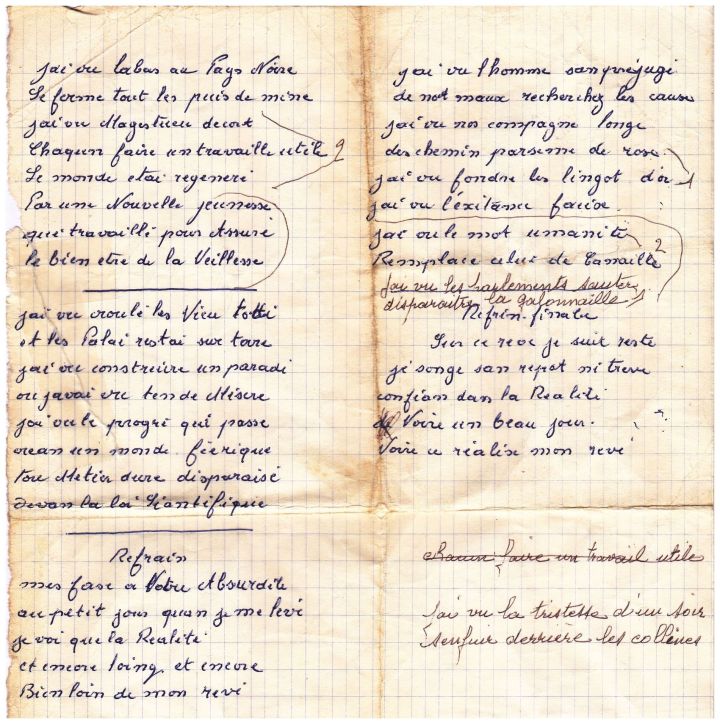 j'ai vu labas au Pays Noire
Se ferme tout les puis de mine
j'ai vu Magestueu decort
Chaqun faire un travaille utile 2
Le monde etai regeneri
Par une Nouvelle jeunesse
qui travaillé pour Assuré
le bien etre de la Veillesse
j'ai vu croulé les Vieu
et les Palai restai sur terre
j'ai vu construire un paradi
ou javai vu ten de Misere
j'ai vu le progri qui passe
crean un monde féerique
tou Metier dure disparaisé
devan la loi Siantifique
Refrain
mes fase a Votre Absurdite
au petit jour quan je me levé
je voi que la Realiti
et encore loing et encore
Bien loin de mon revé
j'ai vu l'homme san préjugi
de not maux recherchez les cause
j'ai vu nos compagne longe
des chemin parseme de rose
j'ai vu fondre les lingot d'or 1
j'ai vu l'éxitance
j'ai vu le mot umanité 2
Remplace celui de Canaille
J'ai vu les parlements sauter
disparaitre la galonnaille 1
Refrin finale
Sur ce reve je suit reste
je songe san repot ni treve
confian dan la Realiti
de Voire un beau jour
Voire ce réalisé mon revé
chacun faire un travail utile
J'ai vu la tristesse d'un soir
senfuir derrière les collines